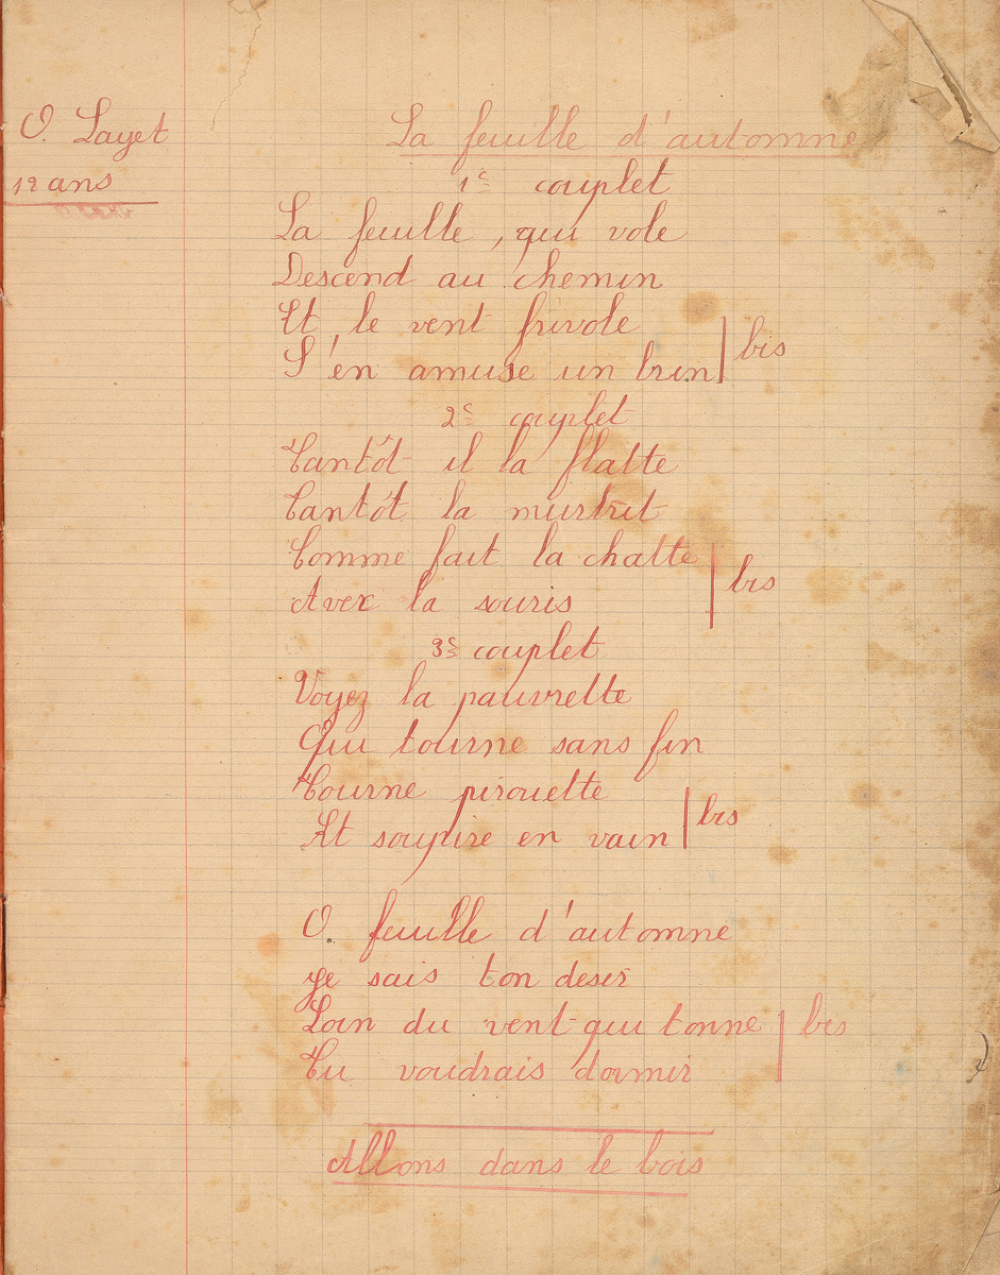 O. Layet
12 ans
La feuille d'automne
1e couplet
La feuille, qui vole
Descend au chemin
Et le vent frivole
S'en amuse un brin
bis
2e couplet
Tantôt il la flatte
Tantôt la murtrit
Comme fait la chatte
Avec la souris
bis
3e couplet
Voyez la pauvrette
Qui tourne sans fin
Tourne pirouette
Et soupire en vain
bis
O. feuille d'automne
Je sais ton desir
Loin du vent qui tonne
Tu voudrais dormir
bis
Allons dans le bois